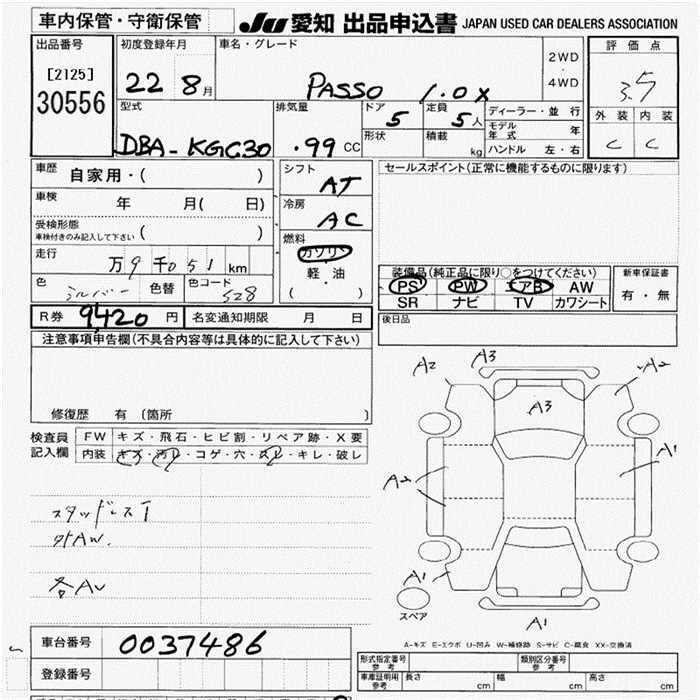 車内保管・守衛保管
JU 愛知 出品申込書 JAPAN USED CAR DEALERS ASSOCIATION
出品番号
[2125]
30556
初度登録年月
22 8月
車名・グレード
PASSO 1.0X
2WD
・
4WD
評価点
3.5
外装 内装
C C
型式
DBA-KGC30
排気量
.99 CC
ドア
5
定員
5人
形状
積載
kg
ディーラー・並行
モデル年式 年
ハンドル 左・右
車歴
自家用・( )
車検
年 月( 日)
受検形態
車検付きのみ記入して下さい ( )
走行
万9千051km
色
シルバー
色替
色コード
S28
シフト
AT
冷房
AC
燃料
ガソリン
軽・油
( )
セールスポイント(正常に機能するものに限ります)
装備品(純正品に限り○をつけてください)
PS PW エアB AW
SR ナビ TV カワシート
新車保証書
有・無
後日品
R券 9,420円
名変通知期限 月 日
注意事項申告欄(不具合内容等は具体的に記入して下さい)
修復歴 有 (箇所 )
検査員
記入欄
FW キズ・飛石・ヒビ割・リペア跡・X要
内装 キズ・汚レ・コゲ・穴・スレ・キレ・破レ
スタッドレスT
外AW.
各AU
A2 A3 A2
A3
A2 A1
A1 A1
A1
スペア
A-キズ E-エクボ U-凹み W-補修跡 S-サビ C-腐食 XX-交換済
車台番号
0037486
登録番号
形式指定番号
参考
類別区分番号
参考
車庫証明用
参考
長さ cm
幅 cm
高さ cm